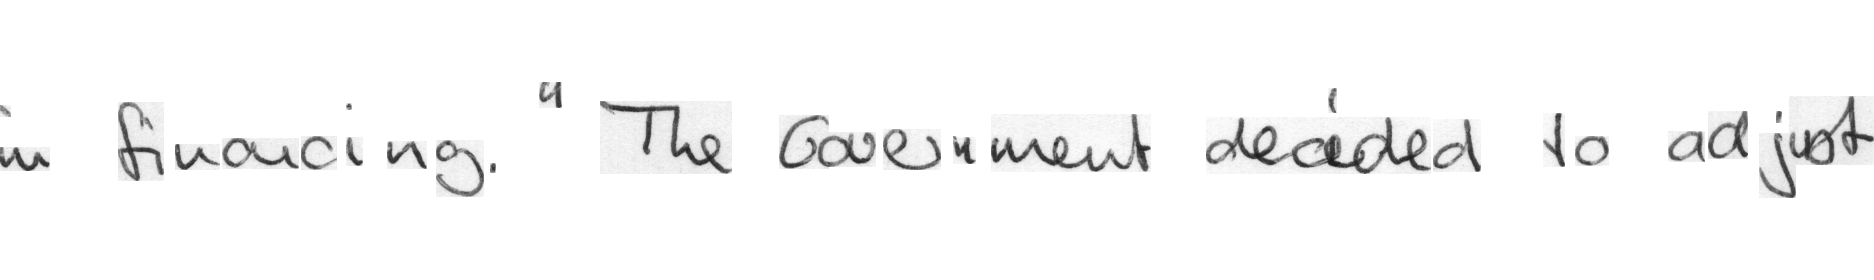 in financing." The Government decided to adjust